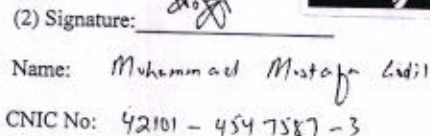 (2) Signature:
Name: Muhammad Mustafa
CNIC No: 42101 - 4547587 - 3